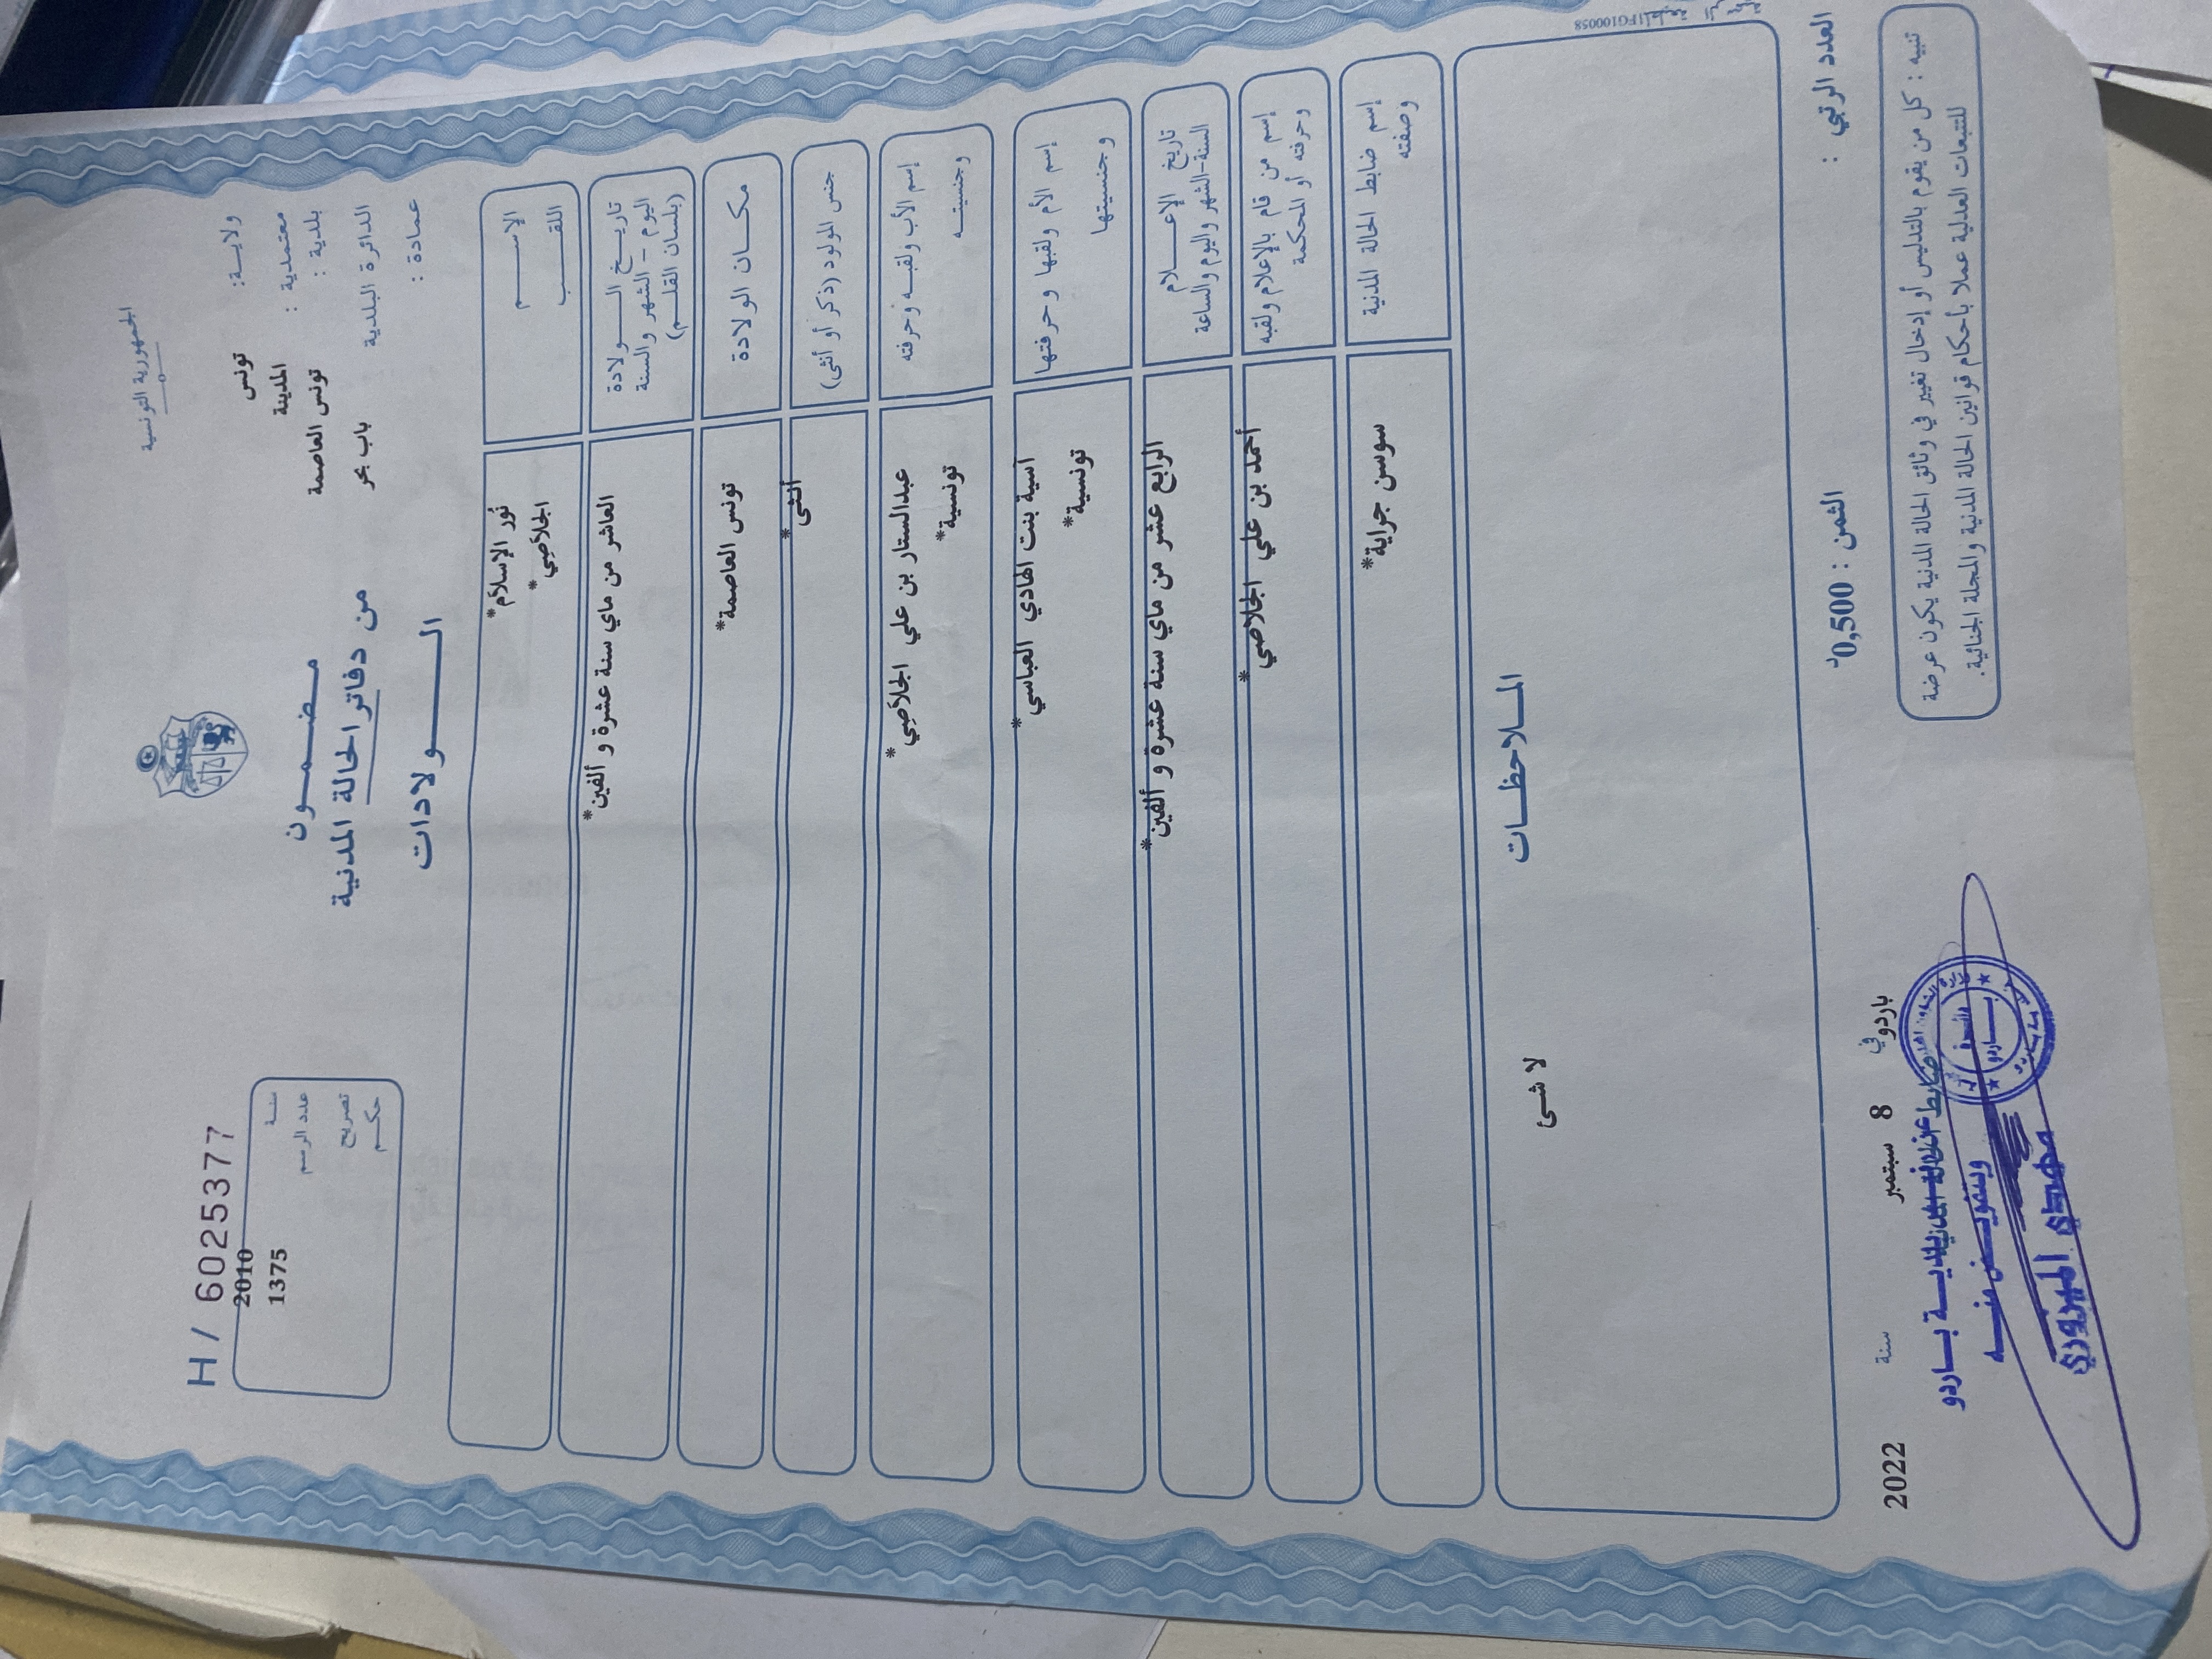 الجمهورية التونسية
H/ 6025377
ولاية: تونس
معتمدية : المدينة
بلدية : تونس العاصمة
الدائرة البلدية باب بحر
عمادة :
مضمون
من دفاتر الحالة المدنية
الولادات
سنة 2010
عدد الرسم 1375
تصريح
حكم
الإسم نور الإسلام*
اللقب الجلاصي*
تاريخ الولادة
اليوم - الشهر والسنة
(بلسان القلم)
العاشر من ماي سنة عشرة و ألفين*
مكان الولادة تونس العاصمة*
جنس المولود (ذكر أو أنثى) أنثى*
إسم الأب ولقبه وحرفته عبدالستار بن علي الجلاصي*
وجنسيته تونسية*
إسم الأم ولقبها وحرفتها آسية بنت الهادي العباسي*
وجنسيتها تونسية*
تاريخ الإعلام
السنة-الشهر واليوم والساعة
الرابع عشر من ماي سنة عشرة و ألفين*
إسم من قام بالإعلام ولقبه
وحرفته أو المحكمة
أحمد بن علي الجلاصي*
إسم ضابط الحالة المدنية
وصفته
سوسن جراية*
IFG100058
الملاحظات
لا شئ
العدد الرتبي :
الثمن : 0,500د
باردو في 8 سبتمبر سنة 2022
تنبيه : كل من يقوم بالتدليس أو إدخال تغيير في وثائق الحالة المدنية يكون عرضة
للتتبعات العدلية عملا بأحكام قوانين الحالة المدنية والمجلة الجنائية.
باردو
وبتفويض منه
مهدي الميزوري